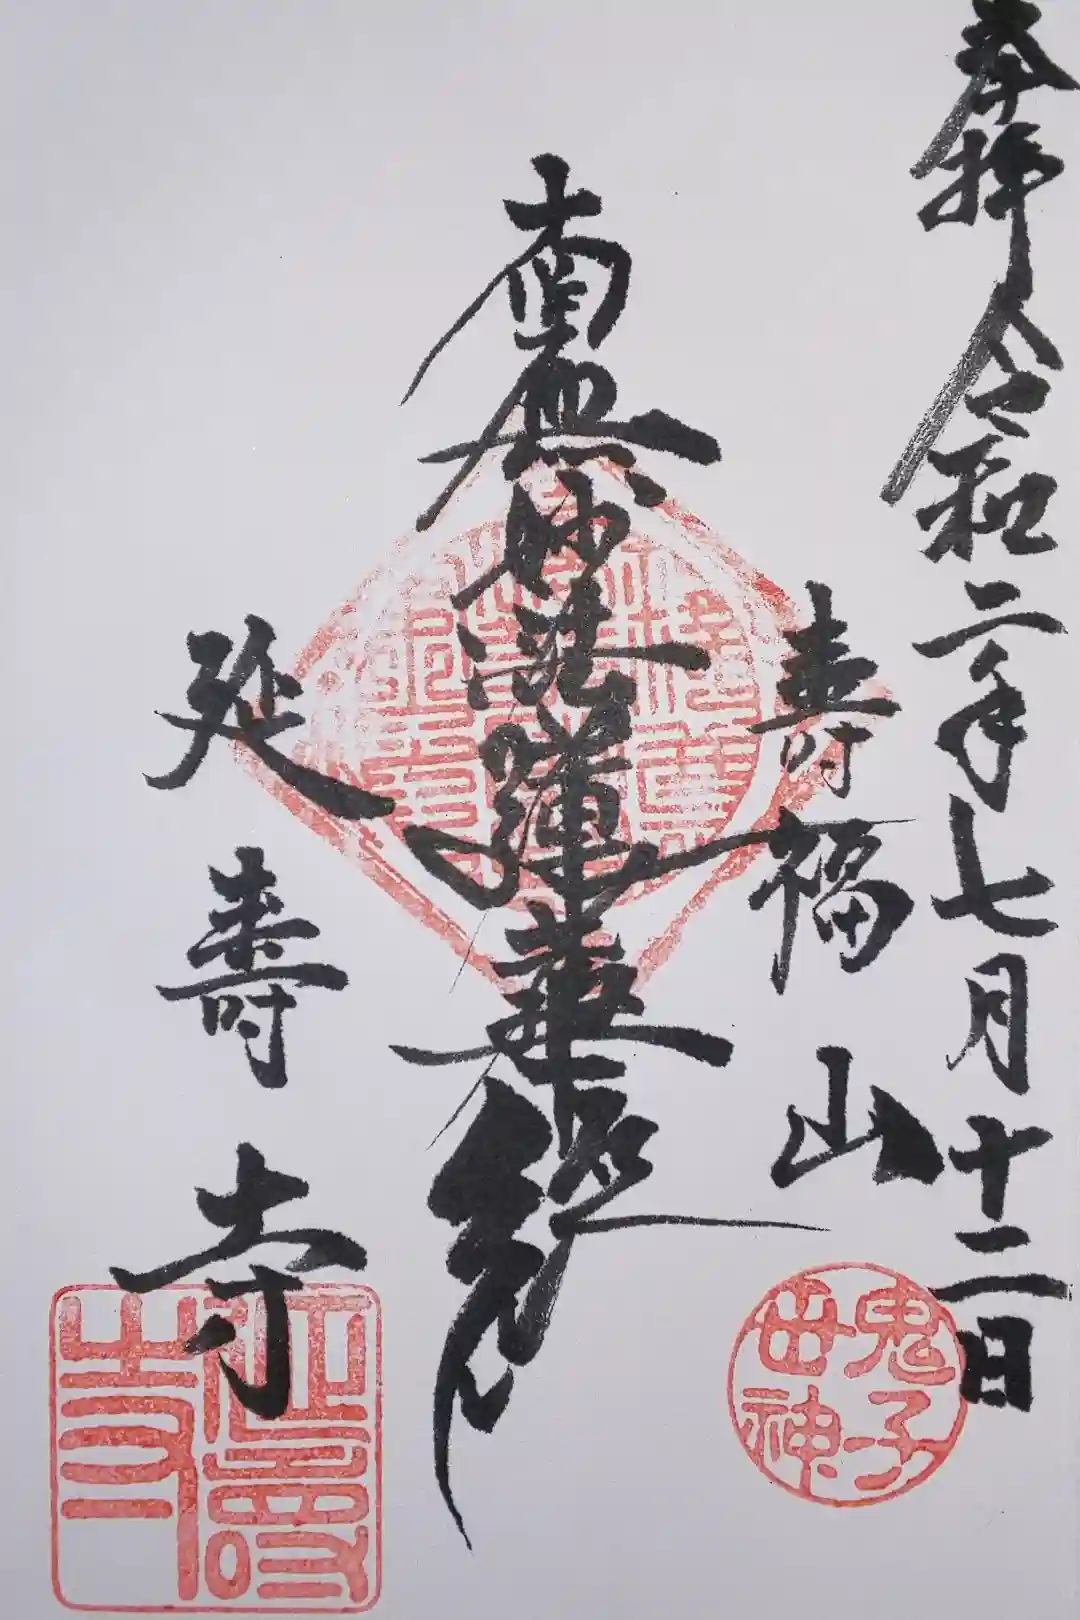 奉拝 令和二年七月十二日
寿福山
南無妙法蓮華経
延寿寺
鬼子
母神
延寿
寺